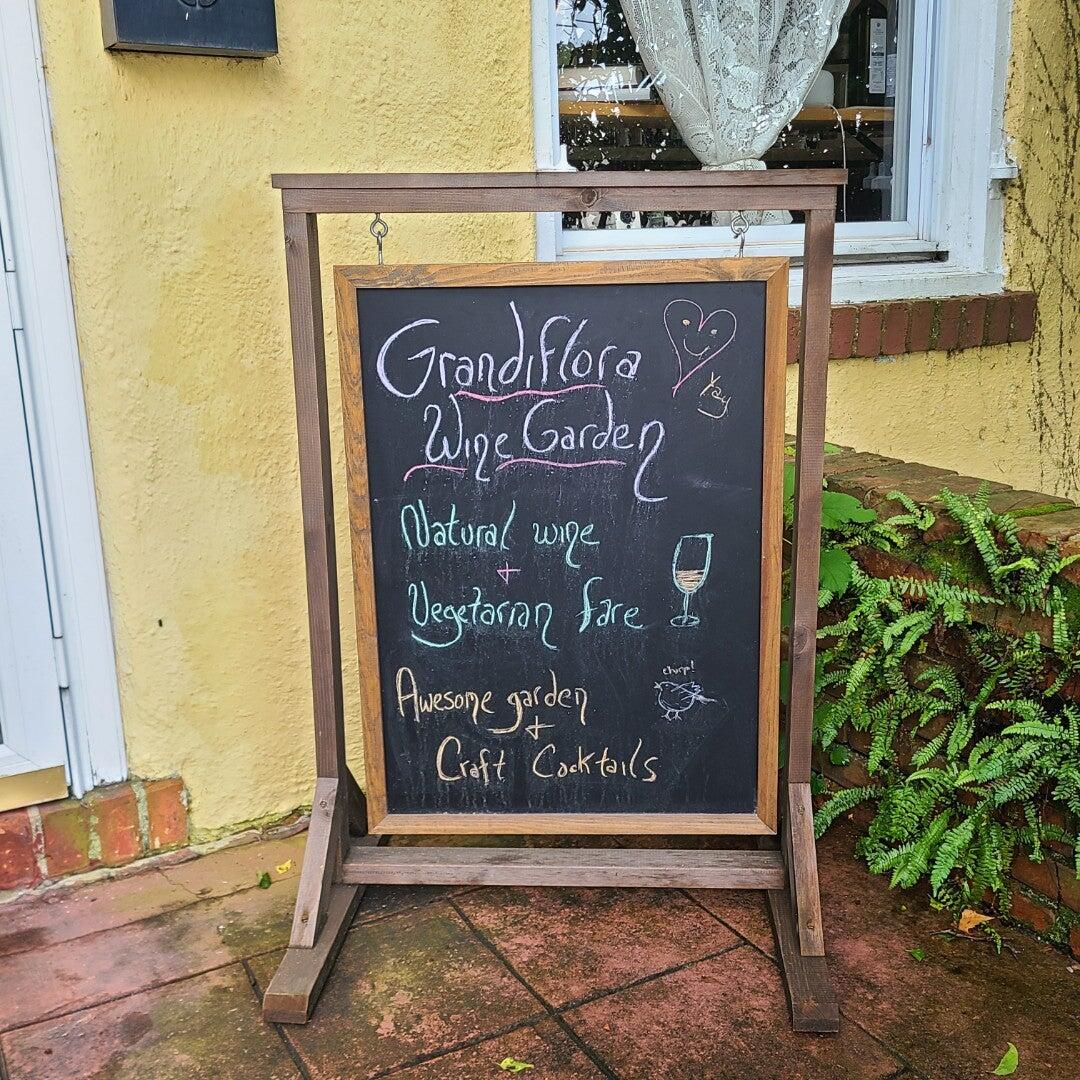 Grandiflora
Yay
Wine Garden
Natural wine
+
Vegetarian fare
chirp!
Awesome garden
+
Craft Cocktails